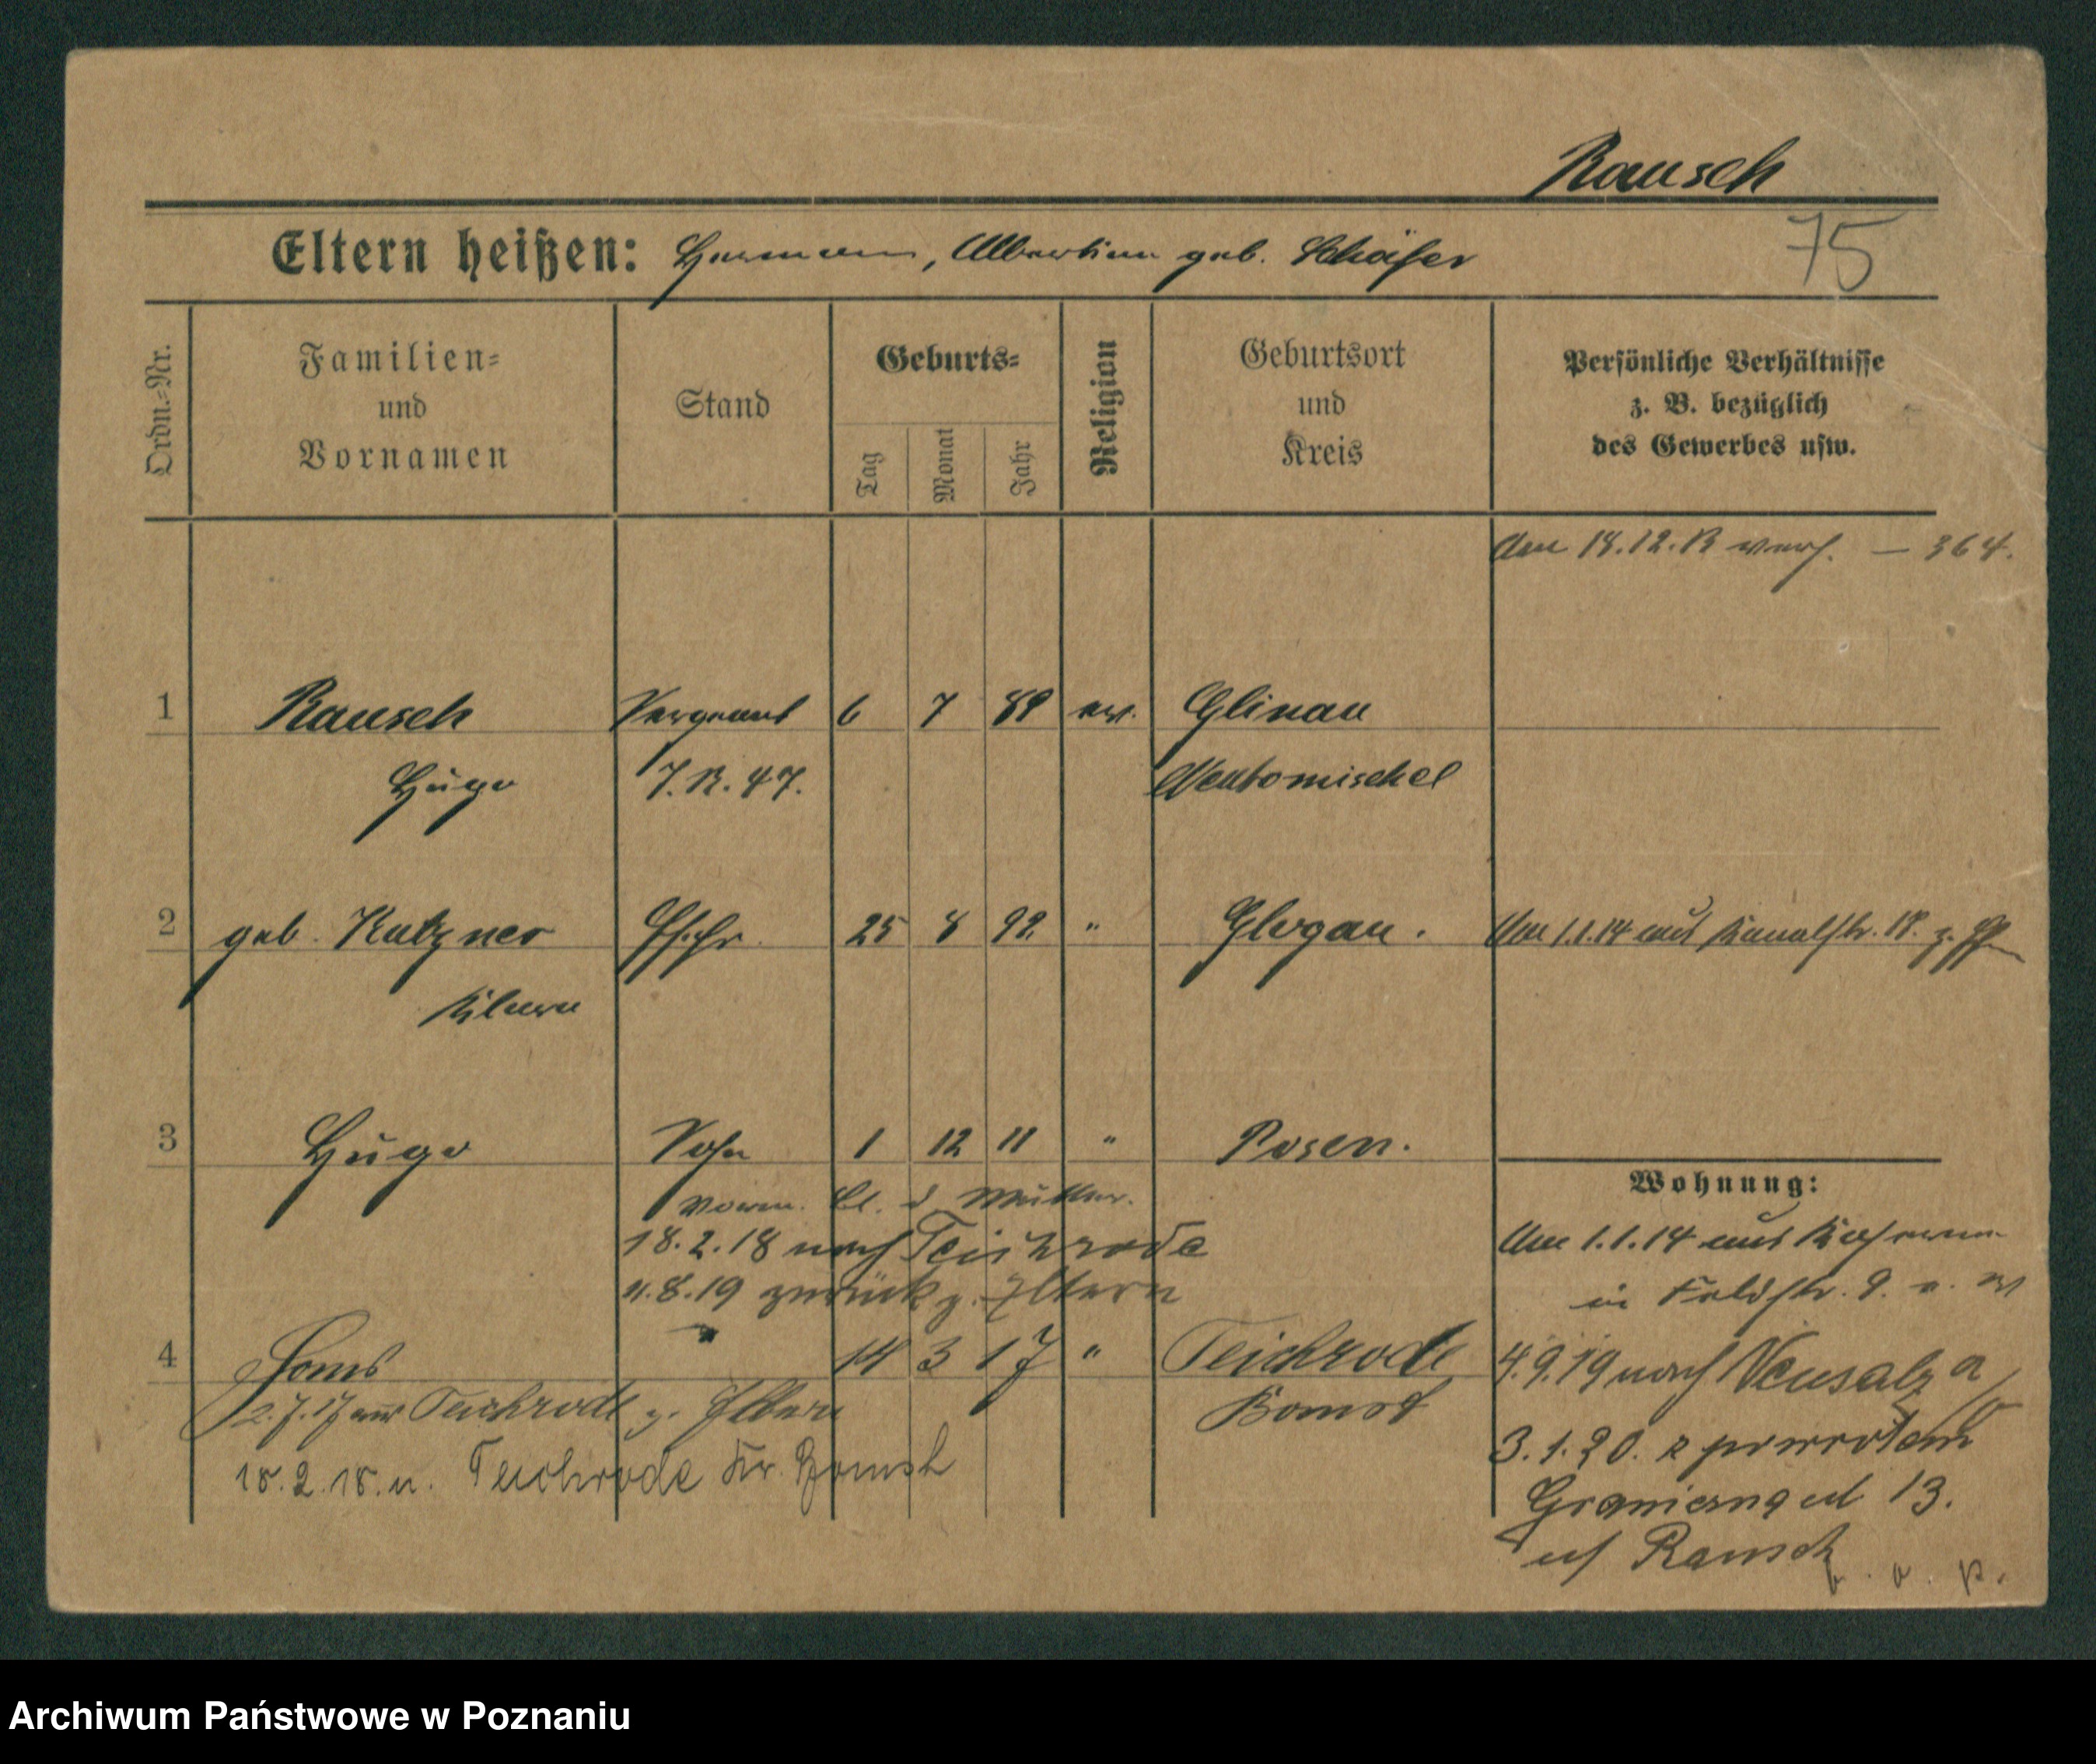 Rausch
75
Eltern heißen: Hermann, Albertine geb. Schäfer
Ordn.-Nr.
Familien-
und
Vornamen
Stand
Geburts-
Tag
Monat
Jahr
Religion
Geburtsort
und
Kreis
Persönliche Verhältnisse
z. B. bezüglich
des Gewerbes usw.
Am verh. — 364.
1 Rausch Sergeant 6 7 89 ev. Glinau
Hugo J.R. 47. Neutomischel
2 geb. Kutzner Ehefr. 25 8 92 " Glogau. Am 1.1.14 aus Kanalstr. 18. z.
3 Hugo Sohn 1 12 11 " Posen.
Vorm. d. Mutter.
18.2.18 nach Teichrode
11.8.19 zurück z. Eltern
Wohnung:
Am 1.1.14 aus Kaserne
in Feldstr. 9.
4 14 3 17 " Teichrode
Bomst
2.7.17 aus Teichrode z. Eltern
18.2.18. n. Teichrode Kr. Bomst
4.9.19 nach Neusalz a/O
3.1.20. z powrotem
13.
Rausch
Archiwum Państwowe w Poznaniu